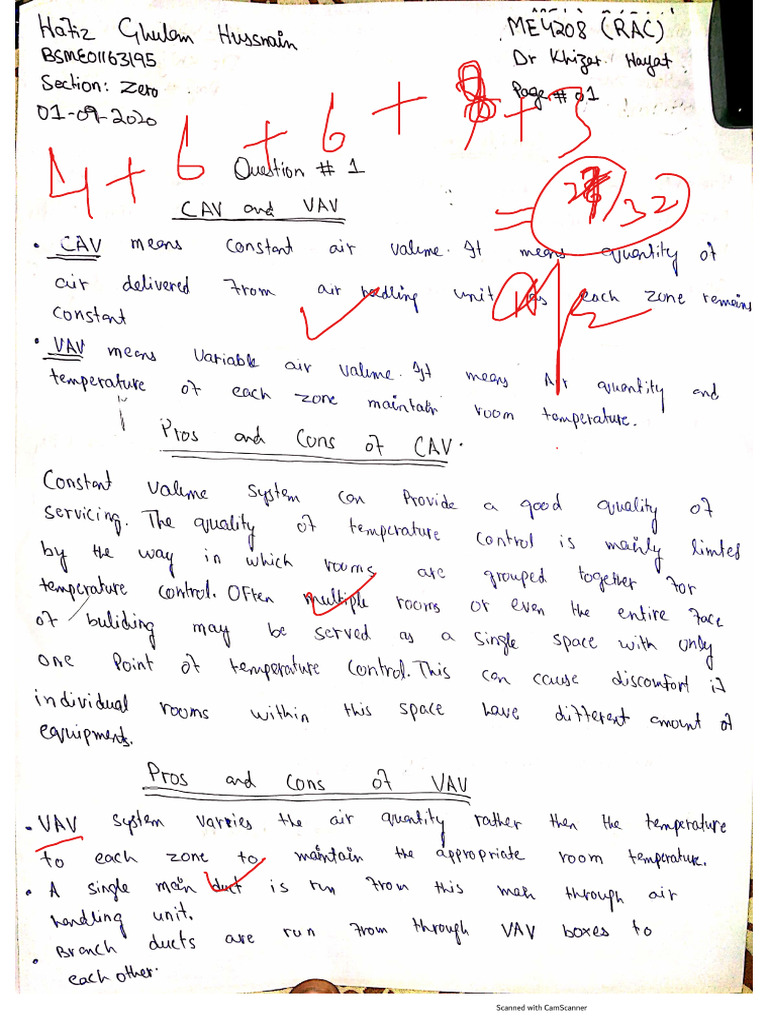 Hafiz Ghulam Hussnain
ME4208 (RAC)
BSME01163195
Dr Khizar Hayat
Section: Zero
Page # 01
01-09-2020
4 + 6 + 6 + 8 + 3
Question # 1
= /32
CAV and VAV
• CAV means constant air valume. It means quantity of
air delivered from air handling unit each zone remains
constant
• VAV means Variable air valume. It means Air quantity and
temperature of each zone maintain room temperature.
Pros and Cons of CAV.
Constant valume system can Provide a good quality of
servicing. The quality of temperature control is mainly limted
by the way in which rooms are grouped together for
temperature control. Often multiple rooms or even the entire face
of buliding may be served as a single space with only
one Point of temperature control. This can cause discomfort if
individual rooms within this space have different amount of
equipments.
Pros and Cons of VAV
• VAV system varries the air quantity rather then the temperature
to each zone to maintain the appropriate room temperature.
• A single main duct is run from this through air
handling unit.
• Branch ducts are run from through VAV boxes to
each other.
Scanned with CamScanner